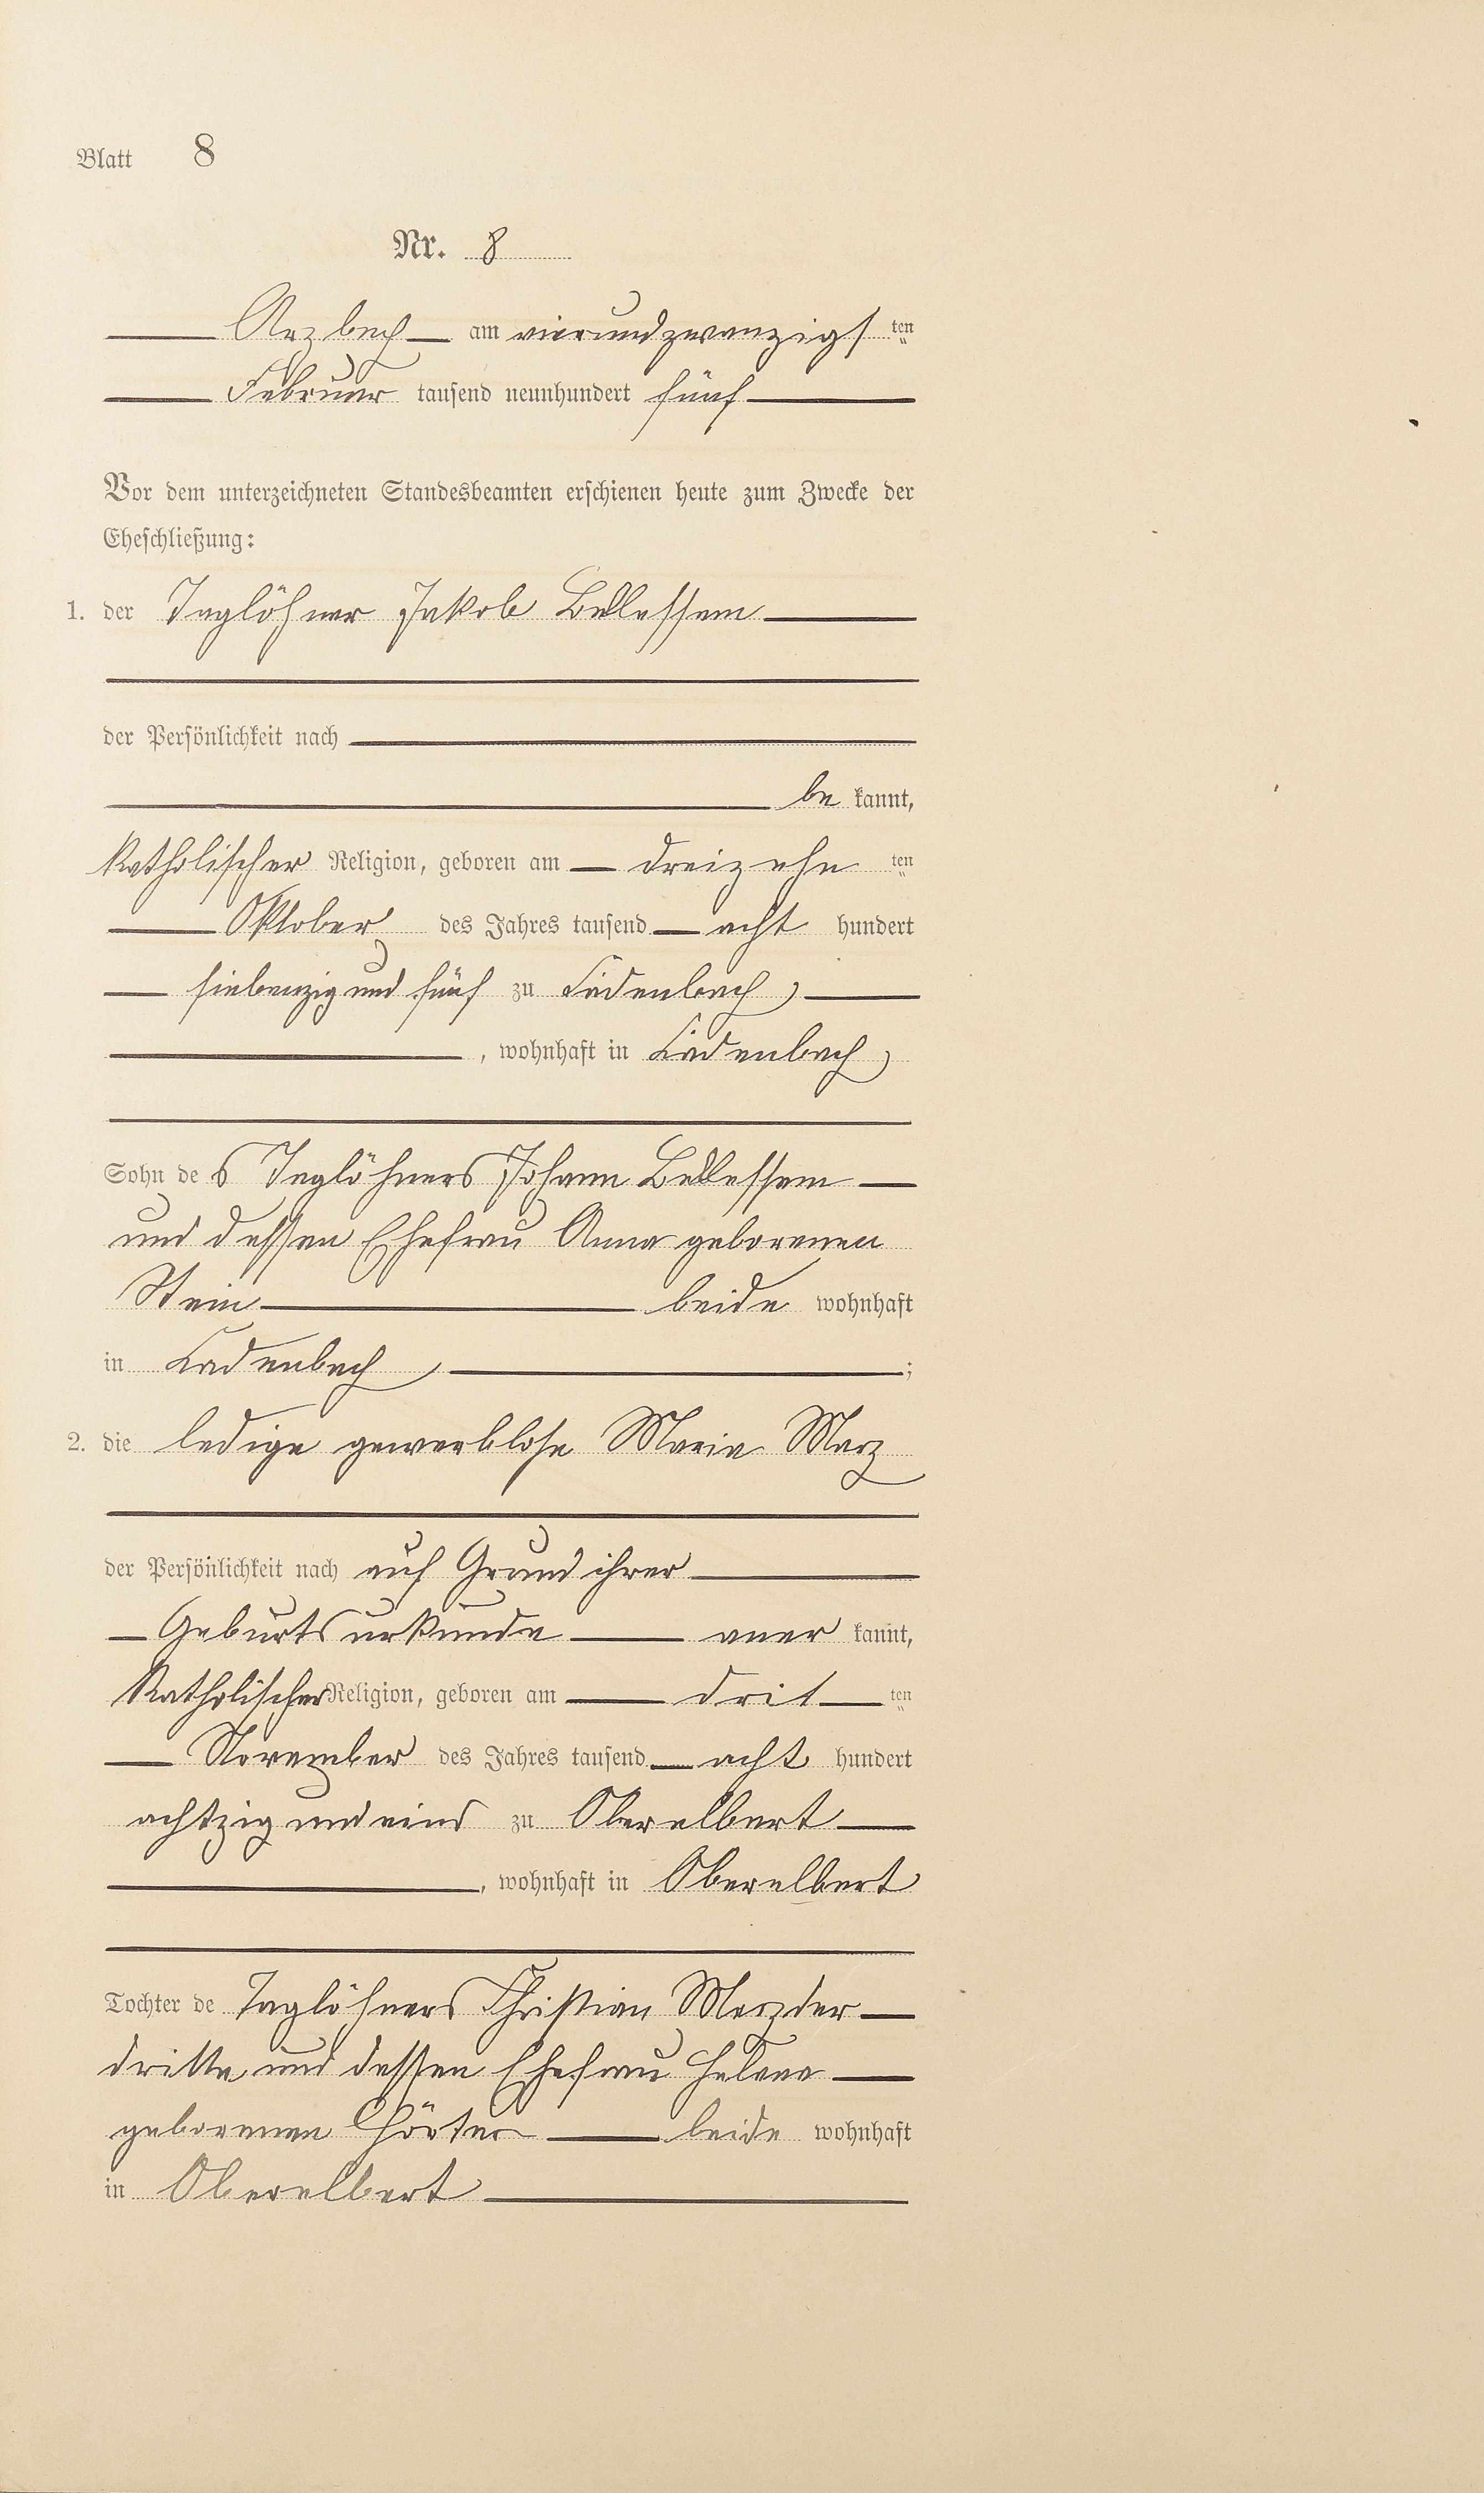 Blatt 8
Nr. 8
Arzbach am vierundzwanzigsten
Februar tausend neunhundert fünf
Vor dem unterzeichneten Standesbeamten erschienen heute zum Zwecke der
Eheschließung:
1. der Taglöhner Jakob Bellessem
der Persönlichkeit nach
be kannt,
katholischer Religion, geboren am dreizehn ten
Oktober des Jahres tausend acht hundert
siebenzig und fünf zu Kadenbach,
, wohnhaft in Kadenbach,
Sohn des Taglöhners Johann Bellessem
und dessen Ehefrau Anna geborenen
Stein beide wohnhaft
in Kadenbach, ;
2. die ledige gewerblose Maria Marz
der Persönlichkeit nach auf Grund ihrer
Geburtsurkunde aner kannt,
katholischer Religion, geboren am drit ten
November des Jahres tausend acht hundert
achtzig und eins zu Oberelbert
, wohnhaft in Oberelbert
Tochter de Taglöhners Christian Marz der
dritte und dessen Ehefrau Helena
geborenen beide wohnhaft
in Oberelbert